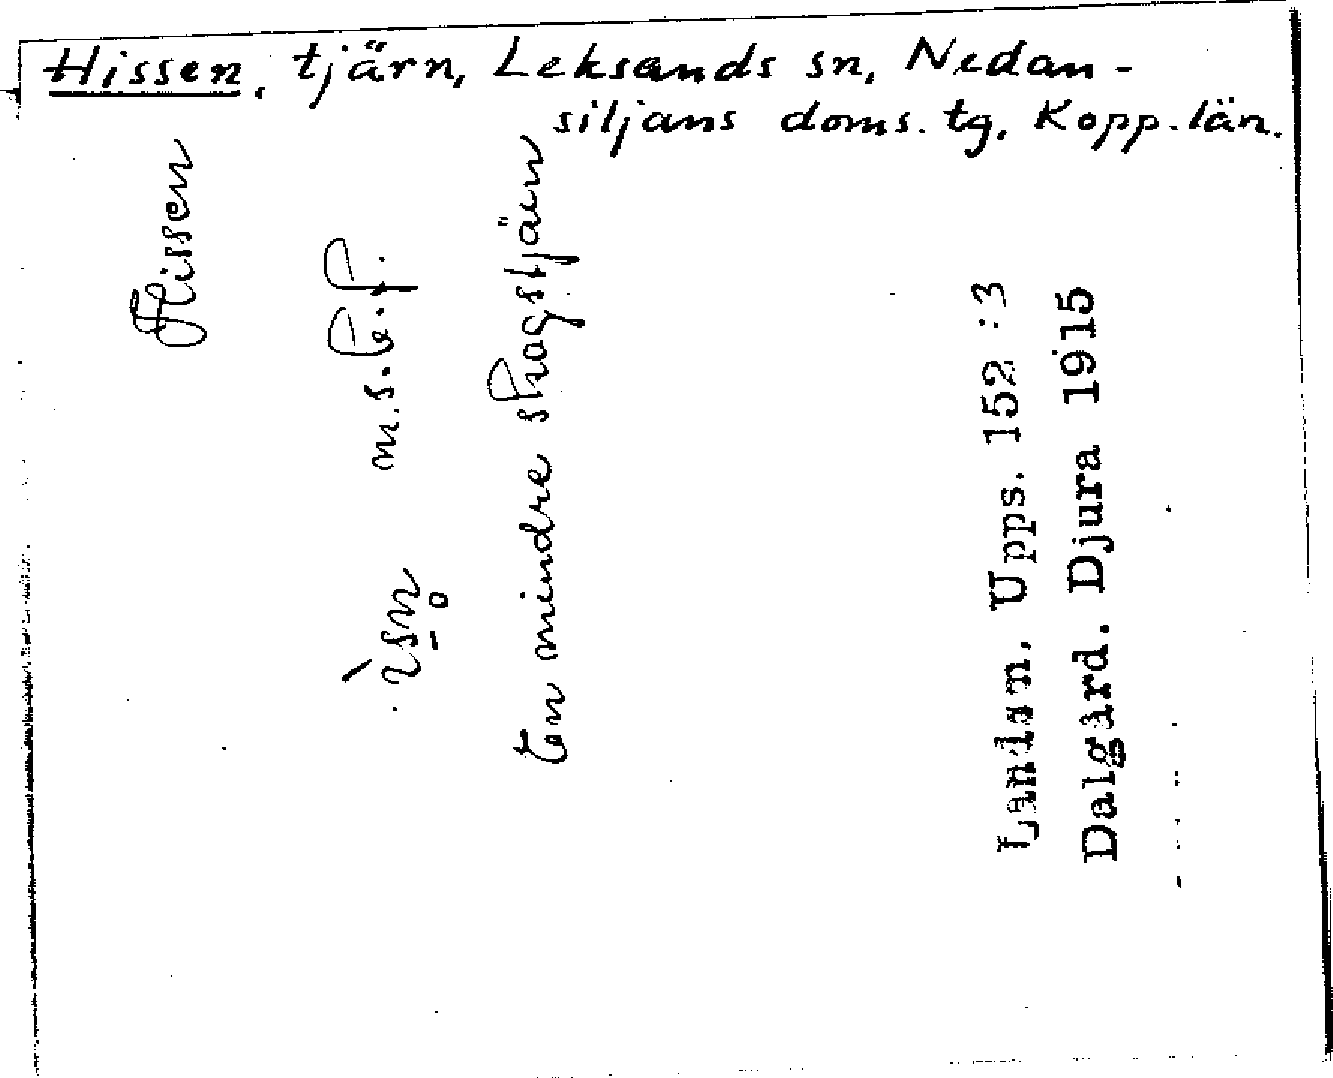 Hissen, tjärn, Leksands sn, Nedan-
siljans doms. tg, Kopp. län.
Hissen
ìsn̥ m.s.b.f.
En mindre skogstjärn
Landsm. Upps. 152:3
Dalgärd. Djura 1915